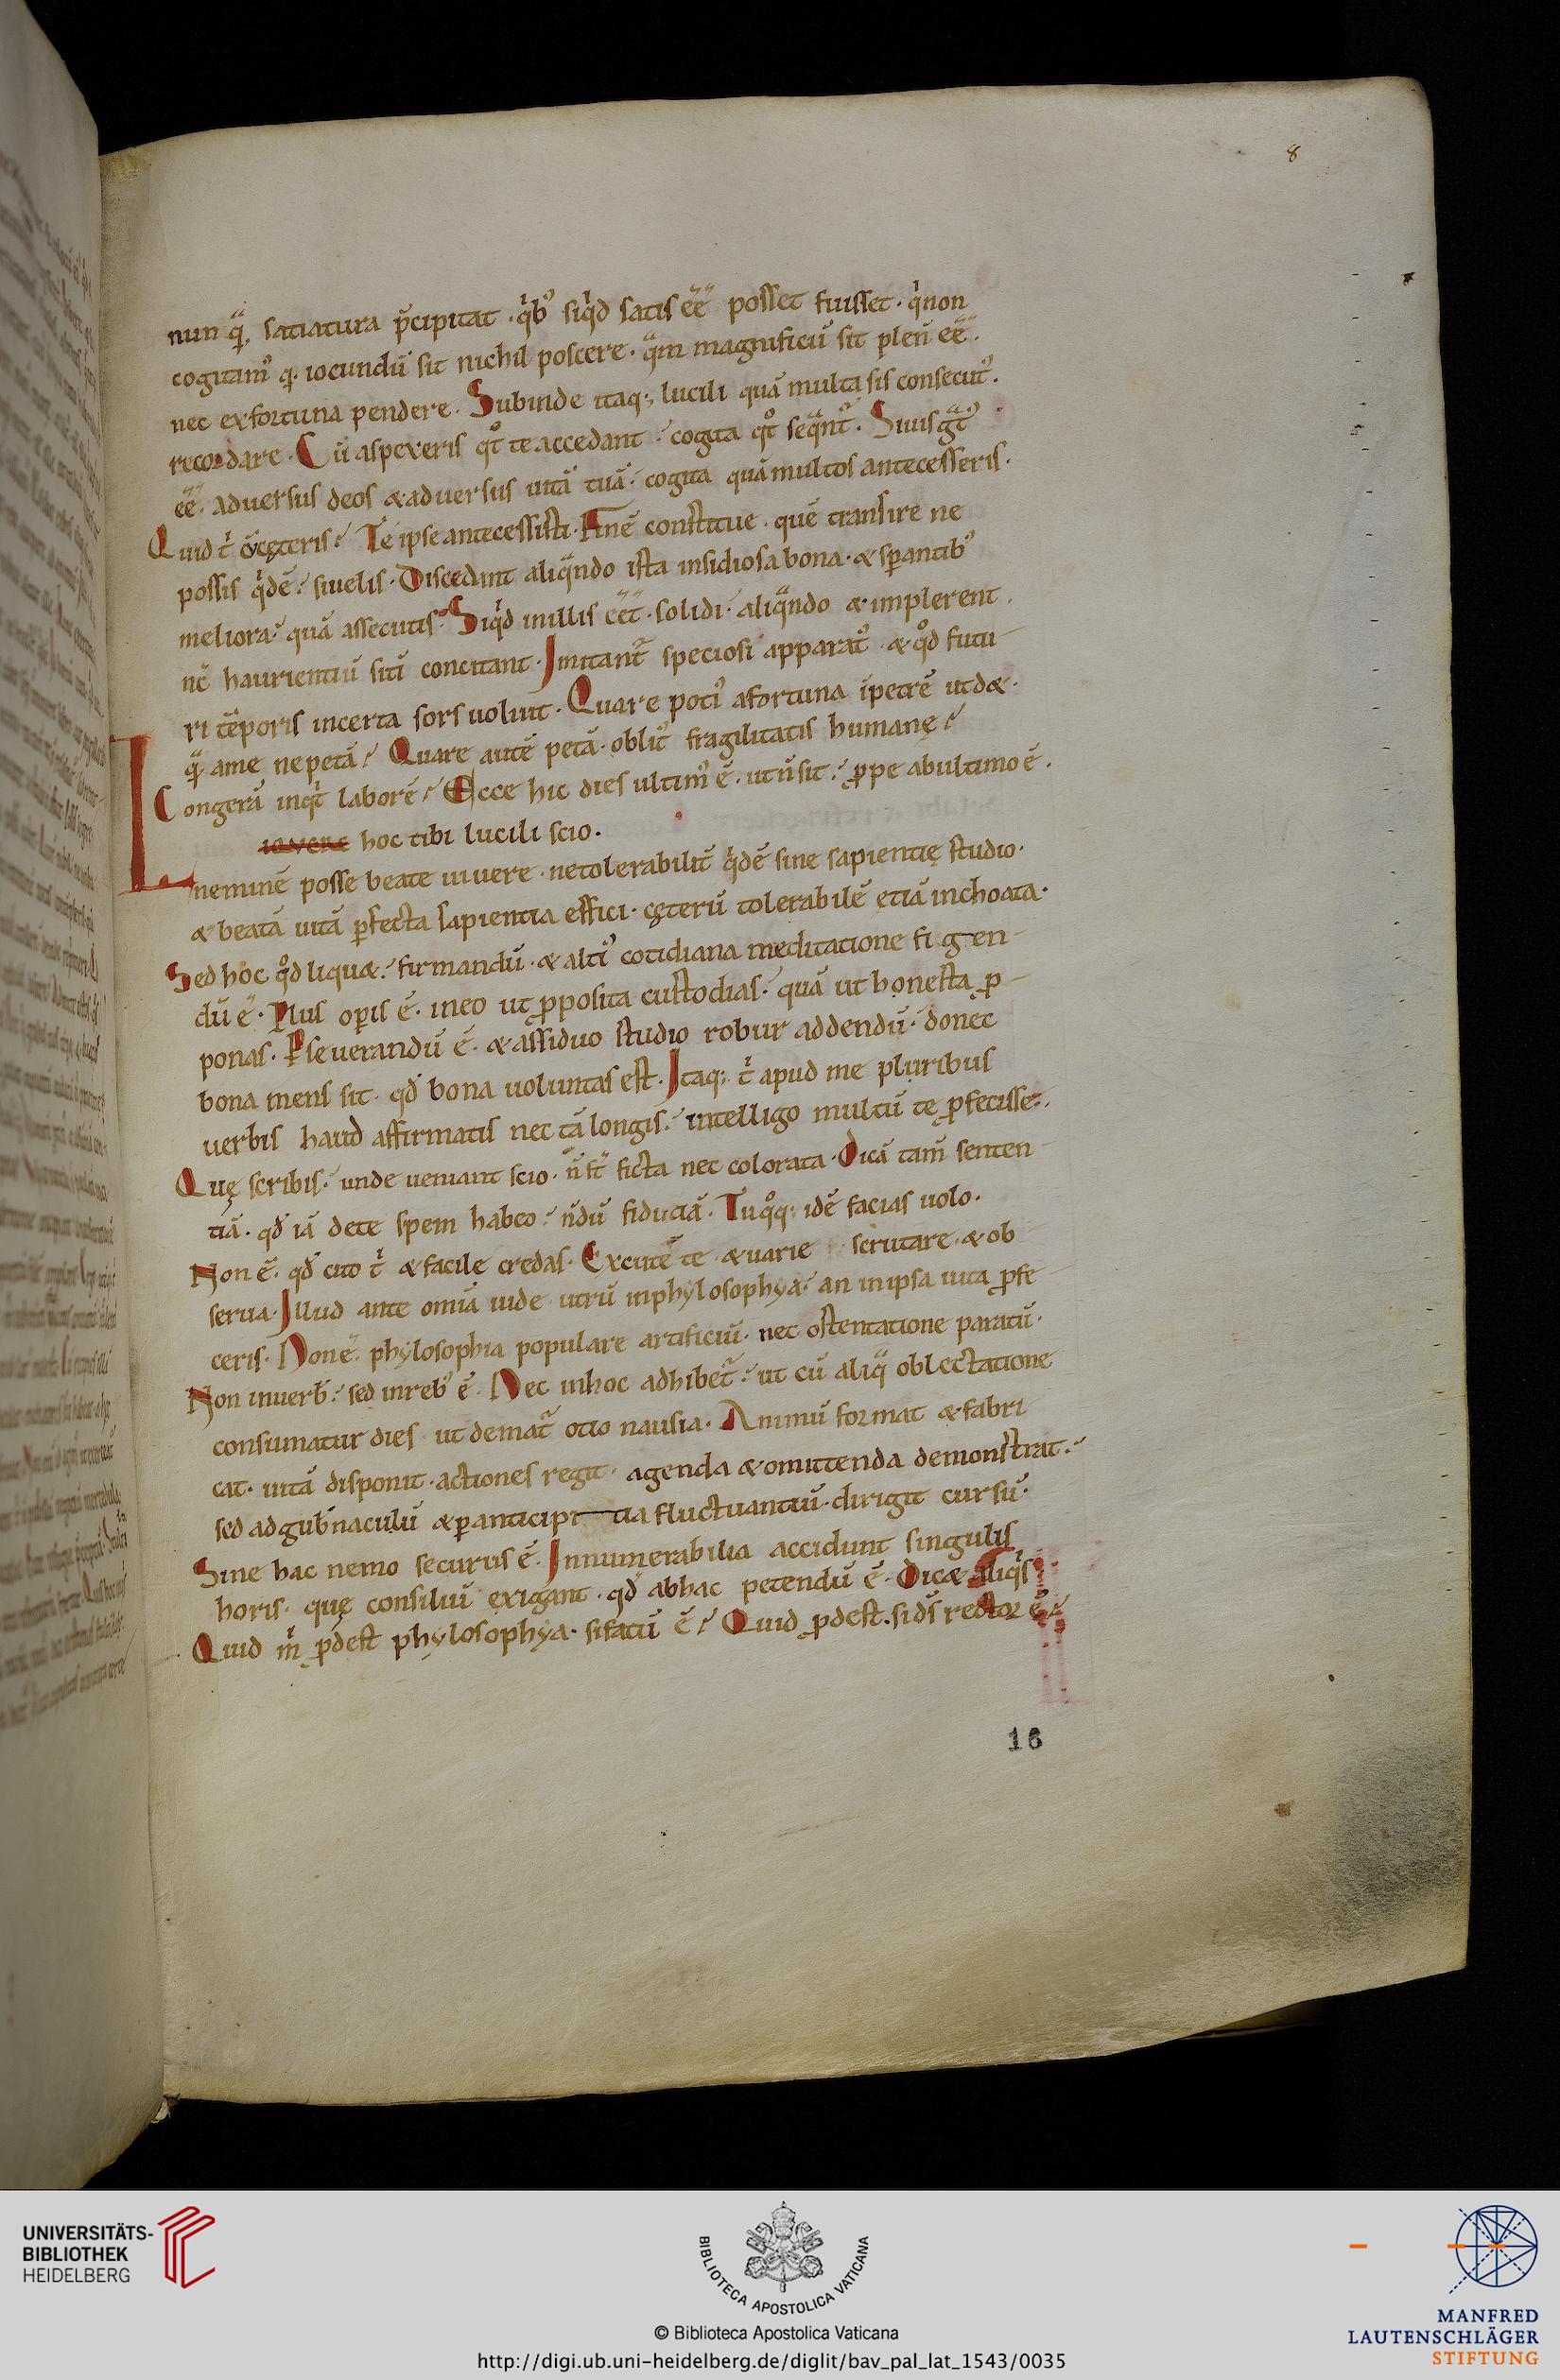 8
nun q̃. satiatura p̄cipitat. qͥbꝰ siqͥd satis ēē posset fuisset. qͥ non
cogitamꝰ q. iocundū sit nichil poscere. qͣm magnificū sit plenū ēē.
nec ex fortuna pendere. Subinde itaq; lucili quā multa sis consecutꝰ.
recordare. Cū aspexeris qͦt te accedant. cogita qͦt seqͣntᷣ. Si uis gͣtꝰ
ēē. aduersus deos & aduersus uitā tuā. cogita quā multos antecesseris.
Quid t̄ cęteris? Te ipse antecessisti. Finē constitue. quē transire ne
possis qͥdē. si uelis. Discedant aliqͣndo ista insidiosa bona. & sperantibꝰ
meliora. quā assecutis. Siqͥd in illis eēt. solidi. aliqͣndo & implerent.
nc̄ haurientiū sitī concitant. Imitantᷣ speciosi apparatꝰ & qͦd futu-
ri tēporis incerta sors uoluit. Quare potiꝰ a fortuna īpetrē ut d&.
qͣ. a me ne petā? Quare autē petā. oblitꝰ fragilitatis humanę?
Congerā inqͥt laborē? Ecce hic dies ultimꝰ ē. ut ñ sit. ꝓpe ab ultimo ē.
L hoc tibi lucili scio.
neminē posse beate uiuere. ne tolerabilit̄ qͥdē sine sapientię studio.
& beatā uitā ꝑfecta sapientia effici. cęterū tolerabilē etiā inchoata.
Sed hoc qͦd liqu&. firmandū. & altiꝰ cotidiana meditatione figen-
dū ē. Plus oꝑis ē. in eo ut ꝓposita custodias. quā ut honesta ꝓ-
ponas. Perseuerandū ē. & assiduo studio robur addendū. donec
bona mens sit. qd̄ bona uoluntas est. Itaq; t̄ apud me pluribus
uerbis haud affirmatis nec tā longis. intelligo multū te ꝓfecisse.
Quę scribis. unde ueniant scio. ñ st̄ ficta nec colorata. Dicā tam̄ senten-
tiā. qd̄ iā de te spem habeo. ñdū fiduciā. Tu qͦq; idē facias uolo.
Non ē. qd̄ cito t̄ & facile credas. Excute te & uarie scrutare. & ob
serua. Illud ante omīa uide utrū in phylosophya. an in ipsa uita ꝓfe
ceris. Non ē. phylosophia populare artificiū. nec ostentatione paratū.
Non in uerb̄. sed in rebꝰ ē. Nec in hoc adhibetᷣ. ut cū aliqͣ oblectatione
consumatur dies ut dematᷣ otio nausia. Animū format & fabri
cat. uitā disponit. actiones regit. agenda & omittenda demonstrat.
sed ad gub̄naculū & ꝑ anticipi tia fluctuantiū. dirigit cursū.
Sine hac nemo securus ē. Innumerabilia accidunt singulis
horis. quę consiliū exigant. qd̄ ab hac petendū ē. Dic& aliqͥs.
Quid m̄ ꝓdest phylosophya. si fatū ē? Quid ꝓdest. si dš rector ē?
16
UNIVERSITÄTS-
BIBLIOTHEK
HEIDELBERG
BIBLIOTECA APOSTOLICA VATICANA
© Biblioteca Apostolica Vaticana
http://digi.ub.uni-heidelberg.de/diglit/bav_pal_lat_1543/0035
MANFRED
LAUTENSCHLÄGER
STIFTUNG